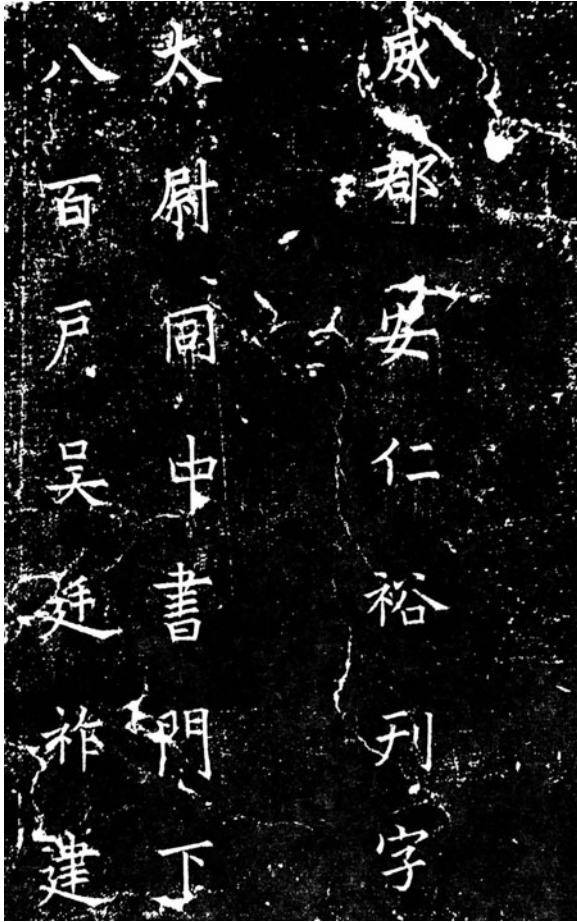 威都安仁裕刋字
太尉同中書門下
八百戶吳廷祚建